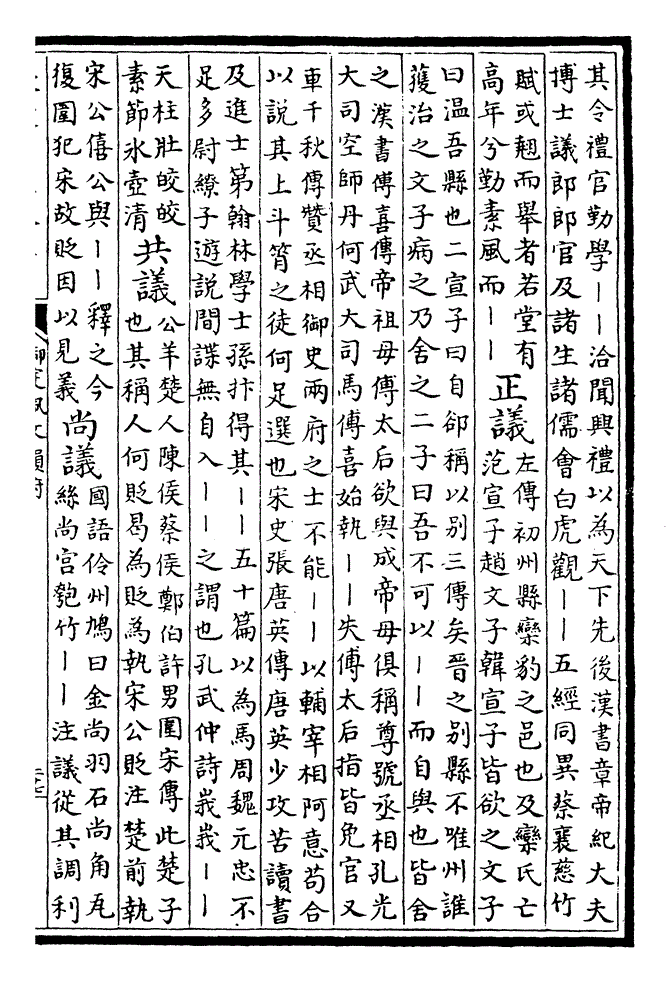 其令禮官勤學——洽聞興禮以為天下先後漢書章帝紀大夫
博士議郎郎官及諸生諸儒會白虎觀——五經同異蔡襄慈竹
賦或翹而舉者若堂有
高年兮勤素風而——
正議
左傳初州縣欒豹之邑也及欒氏亡
范宣子趙文子韓宣子皆欲之文子
曰温吾縣也二宣子曰自郤稱以別三傳矣晉之別縣不唯州誰
獲治之文子病之乃舍之二子曰吾不可以——而自與也皆舍
之漢書傅喜傳帝祖母傅太后欲與成帝母俱稱尊號丞相孔光
大司空師丹何武大司馬傅喜始執——失傅太后指皆免官又
車千秋傳贊丞相御史兩府之士不能——以輔宰相阿意苟合
以說其上斗筲之徒何足選也宋史張唐英傳唐英少攻苦讀書
及進士第翰林學士孫抃得其——五十篇以為馬周魏元忠不
足多尉繚子遊説間諜無自入——之謂也孔武仲詩峩峩——
天柱壯皎皎
素節氷壺清
共議
公羊楚人陳侯蔡侯鄭伯許男圍宋傳此楚子
也其稱人何貶曷為貶為執宋公貶注楚前執
宋公僖公與——釋之今
復圍犯宋故貶因以見義
尚議
國語伶州鳩曰金尚羽石尚角瓦
絲尚宫匏竹——注議從其調利